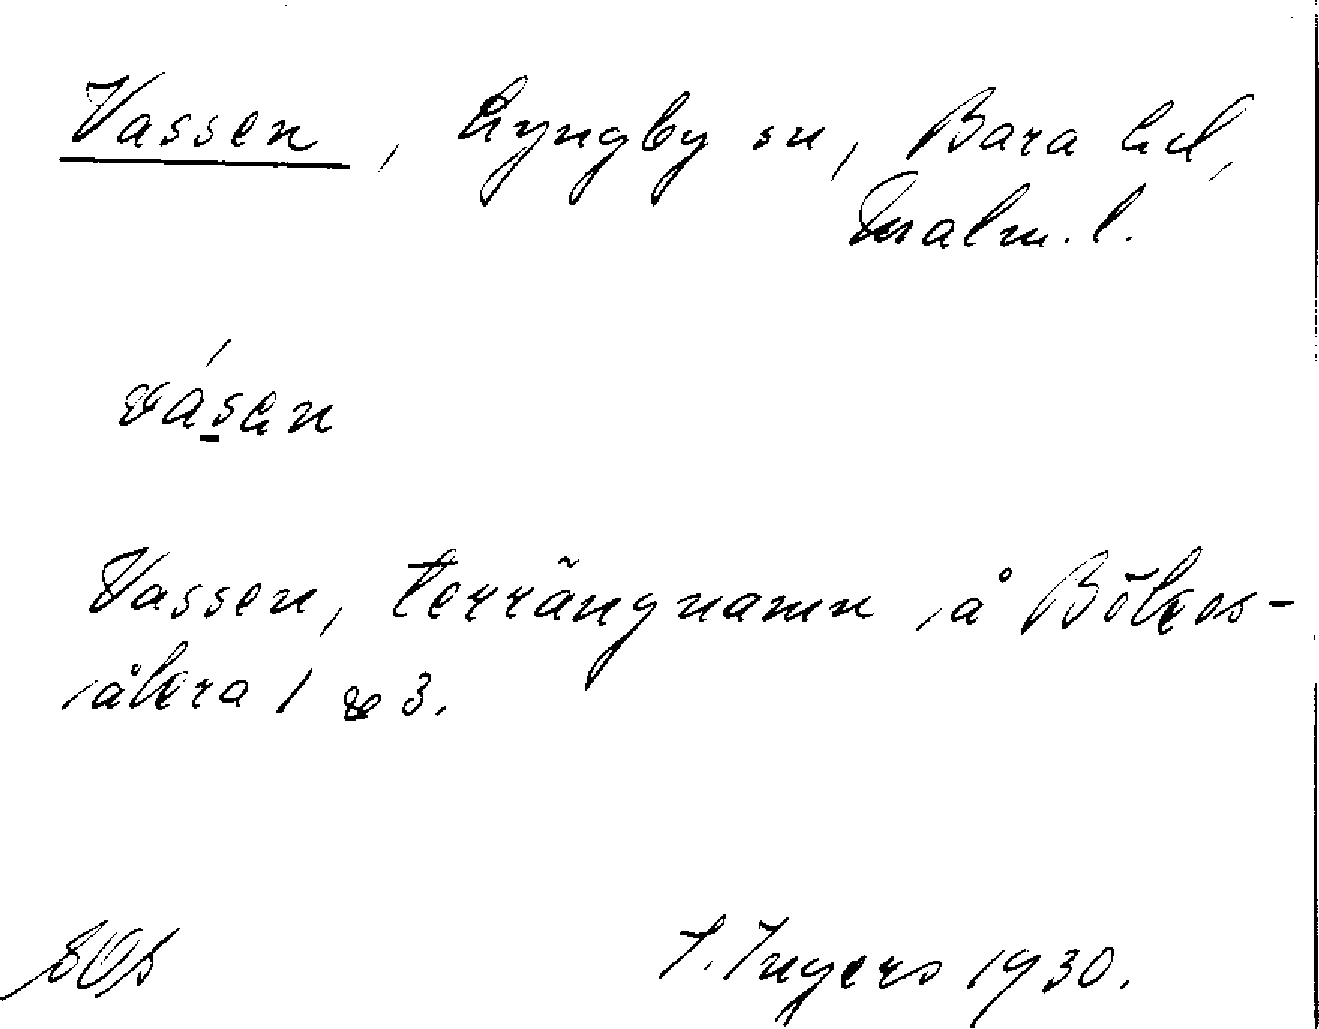 Vassen, Lyngby sn, Bara hd,
Malm. l.
vásen
Vassen, terrängnamn å Bökes-
åkra 1 & 3.
I. Ingers 1930.